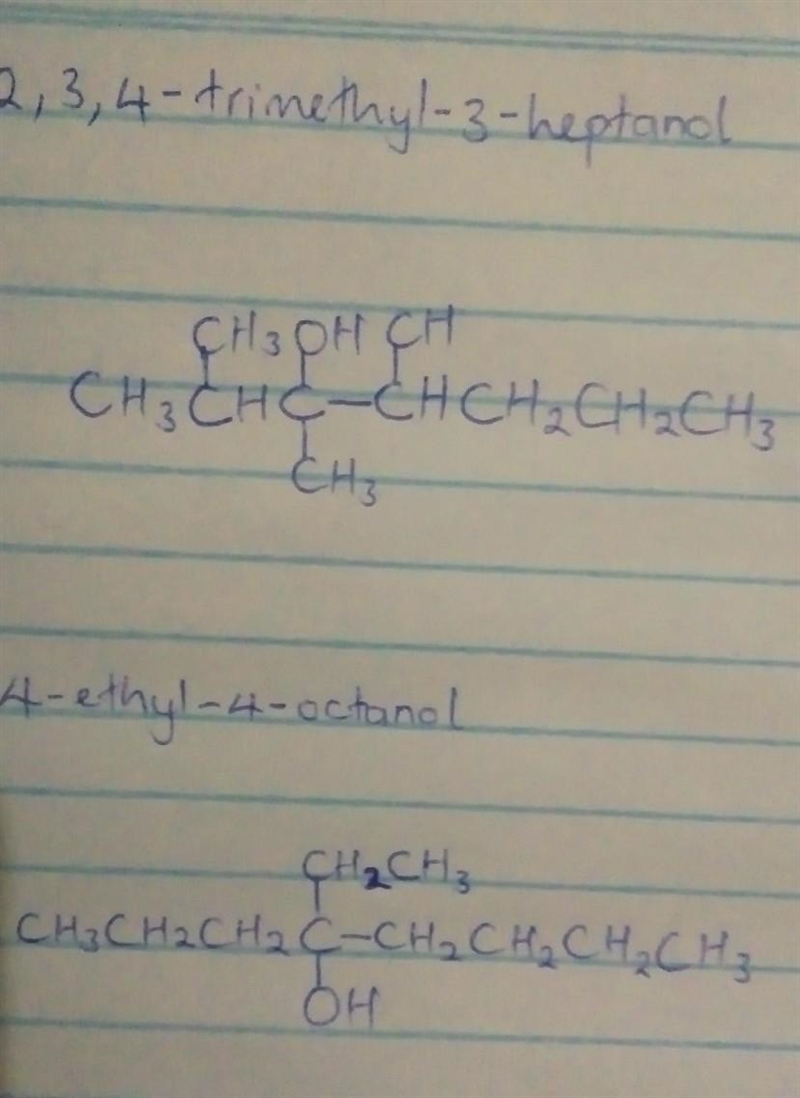 2,3,4-trimethyl-3-heptanol
CH3 OH CH
CH3CHC-CHCH2CH2CH3
CH3
4-ethyl-4-octanol
CH2CH3
CH3CH2CH2C-CH2CH2CH2CH3
OH